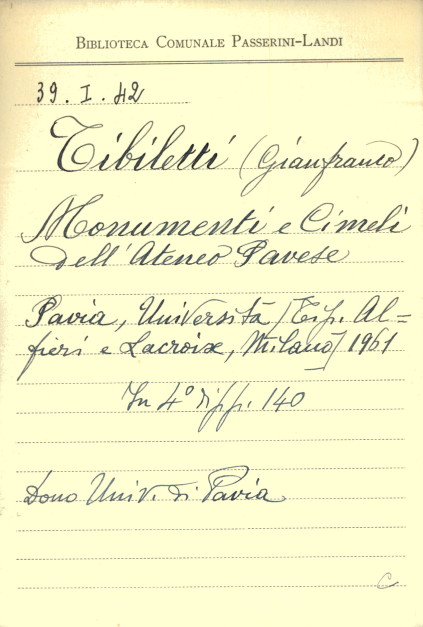 BIBLIOTECA COMUNALE PASSERINI-LANDI
39. I. 42
Tibiletti (Gianfranco)
Monumenti e Cimeli
dell'Ateneo Pavese
Pavia, Università [Tip. Al=
fieri e Lacroix, Milano] 1961
In 4° di pp. 140
Dono Univ. di Pavia
C